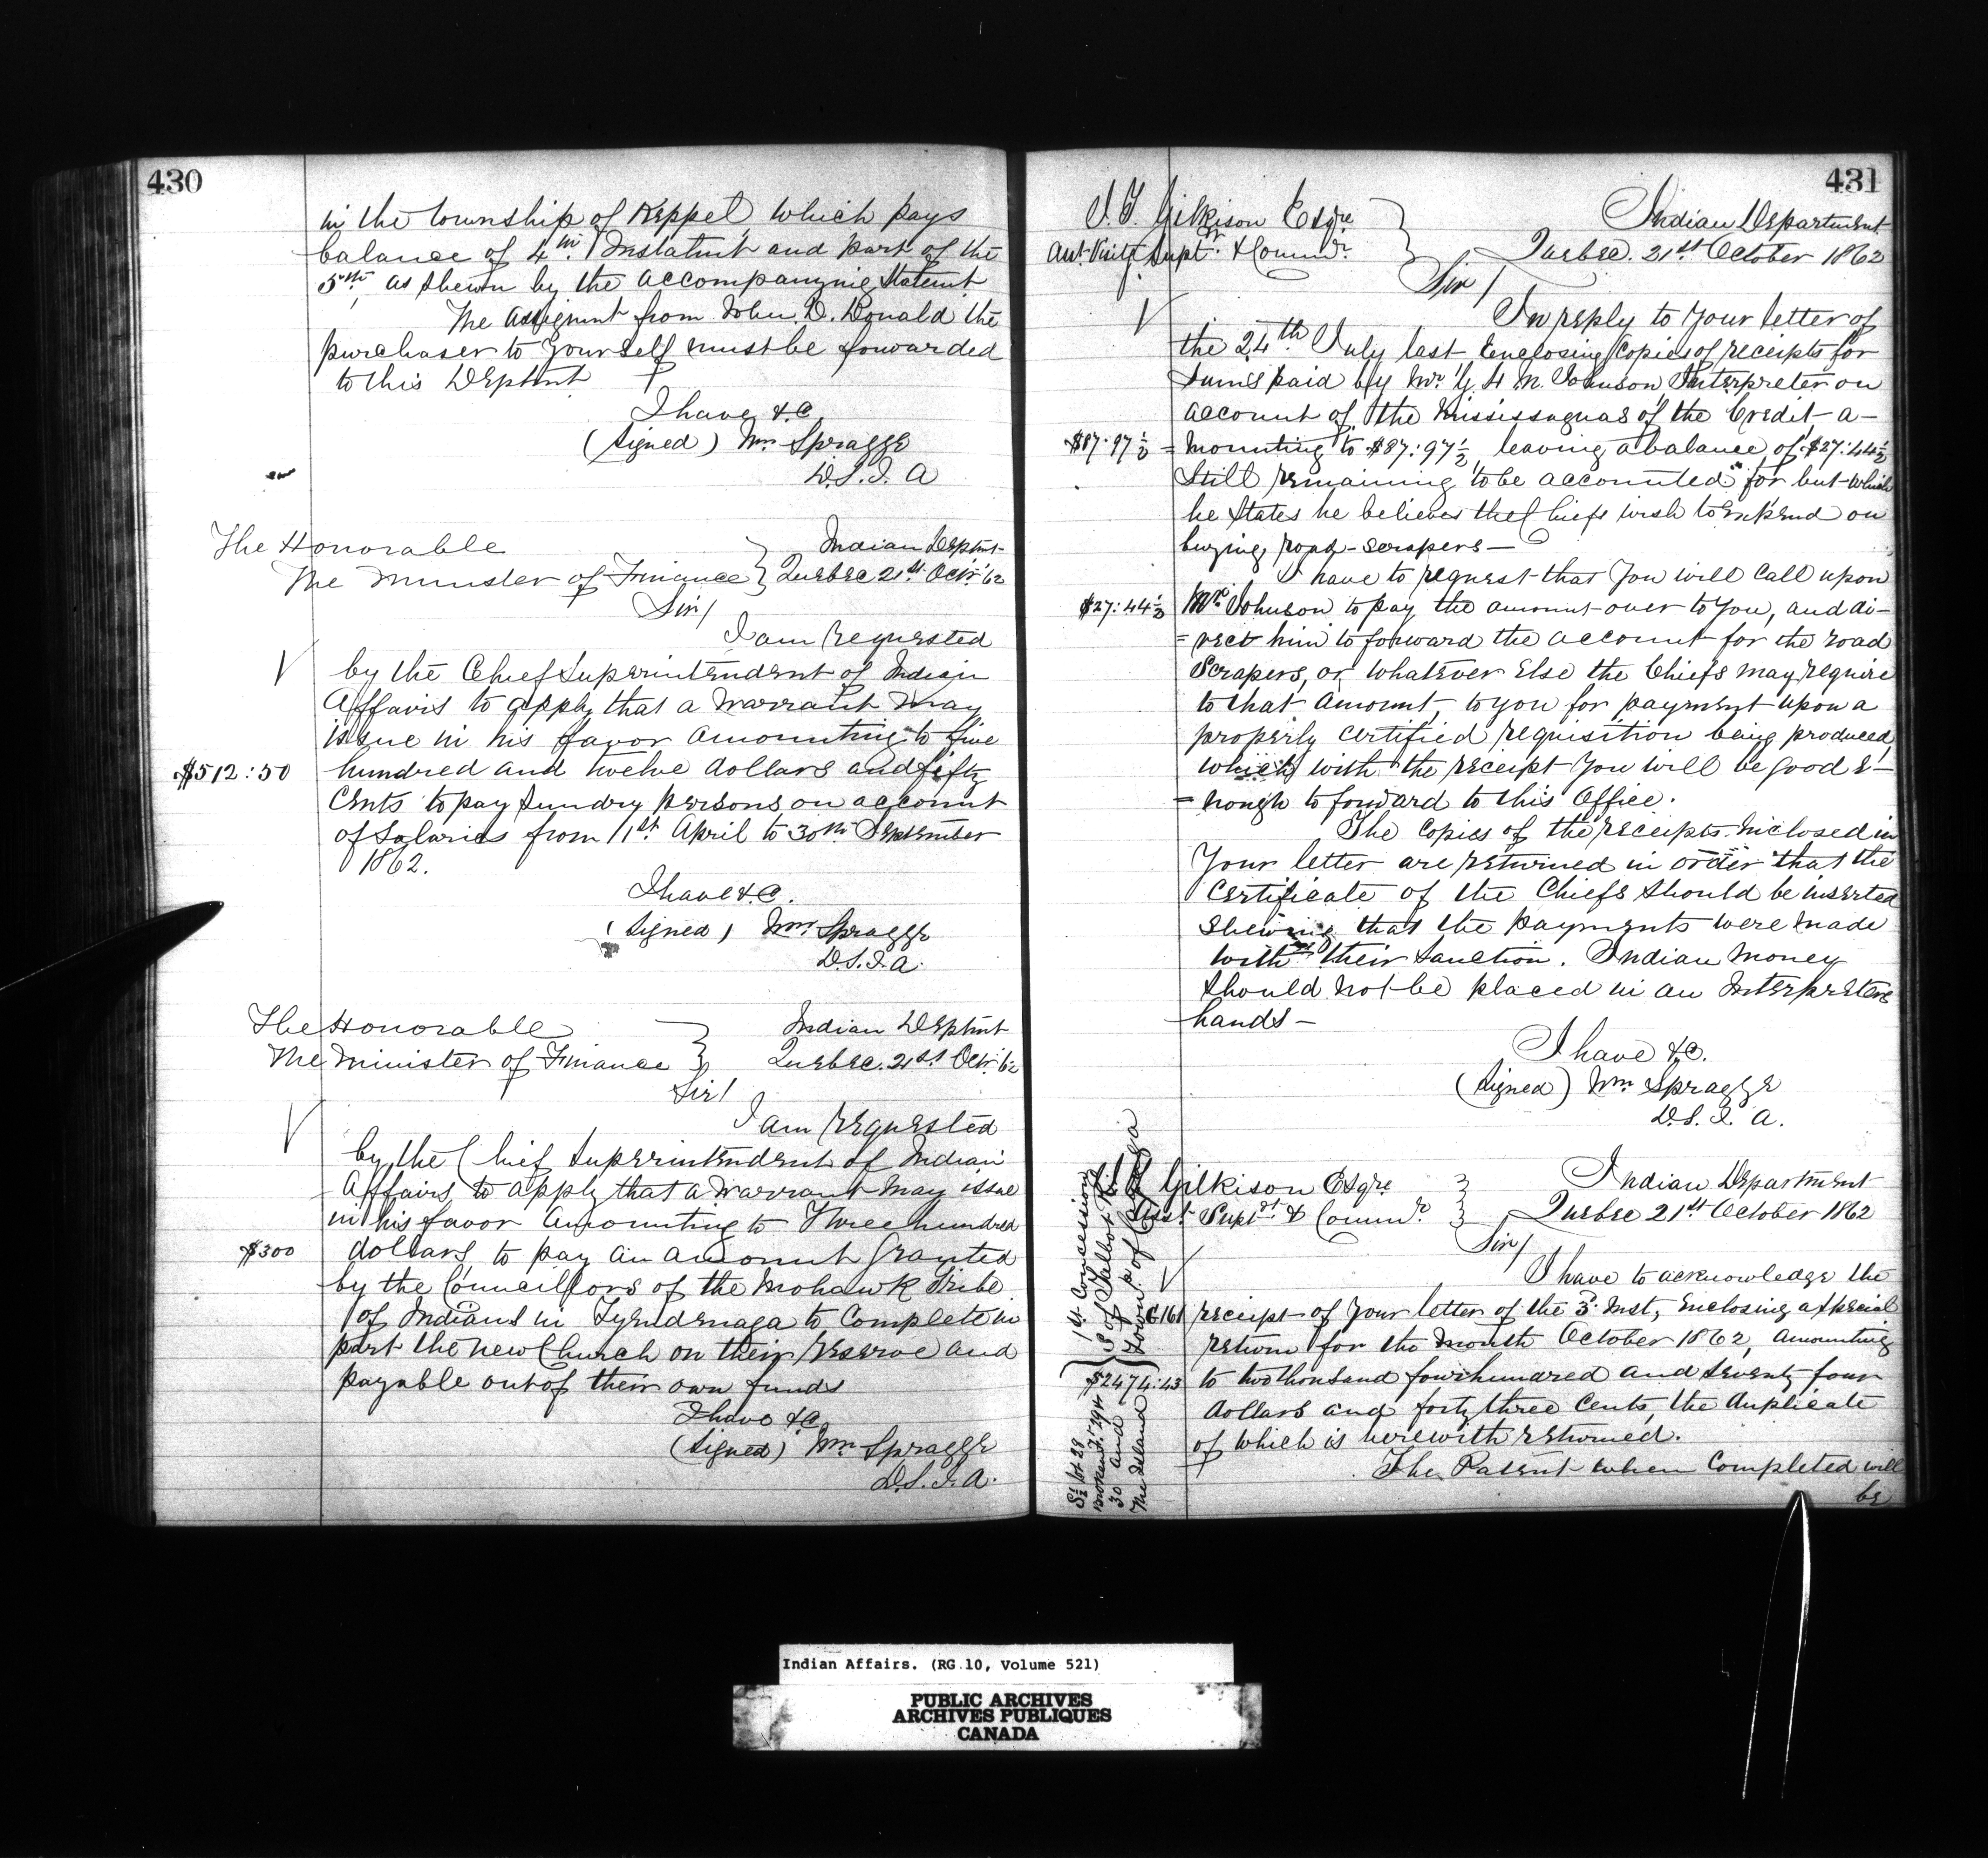 430
in the township of Keppel which pays
balance of 4th Instalmt and part of the
5th as shewn by the accompanying Statemt
The Assignmt from John D. Donald the
purchaser to yourself must be forwarded
to this Deptmt
I have &c
(Signed) Wm Spragge
D.S.I.A
The Honorable
The Minister of Finance } Indian Deptmt
Quebec 21st Octr '62
Sir/
I am requested
by the Chief Superintendent of Indian
Affairs to apply that a Warrant may
issue in his favor amounting to five
$512:50 hundred and twelve dollars and fifty
Cents to pay sundry persons on account
of Salaries from 1st April to 30th September
1862.
I have &c.
(Signed) Wm Spragge
D.S.I.A.
The Honorable
The Minister of Finance } Indian Deptmt
Quebec. 21st Octr '62
Sir/
I am requested
by the Chief Superintendent of Indian
Affairs, to apply that a Warrant may issue
in his favor Amounting to Three hundred
$300 dollars, to pay an amount granted
by the Councillors of the Mohawk Tribe
of Indians in Tyendenaga to Complete in
part the new Church on their reserve and
payable out of their own funds
I have &c
(Signed) Wm Spragge
D.S.I.A.
431
J. T. Gilkison Esqre
Visitg Supt & Commr } Indian Department
Quebec. 21st October 1862
Sir/
In reply to Your letter of
the 24th July last Enclosing Copies of receipts for
Sums paid by Mr G. H. M. Johnson Interpreter on
account of the Mississaguas of the Credit a-
$87:97½ = mounting to $87:97½ leaving a balance of $27:44½
Still remaining to be accounted for but which
he States he believes the Chiefs wish to Expend on
buying road-scrapers—
I have to request that You will Call upon
$27:44½ Mr Johnson to pay the amount over to You, and di-
=rect him to forward the account for the road
Scrapers, or whatever Else the Chiefs may require
to that amount, to you for payment upon a
properly Certified requisition being produced
which with the receipt You will be good e-
=nough to forward to this Office.
The Copies of the receipts inclosed in
Your letter are returned in order that the
Certificate of the Chiefs should be inserted
shewing that the payments were made
with their sanction. Indian Money
should not be placed in an Interpreters
hands—
I have &c.
(Signed) Wm Spragge
D.S.I.A.
Gilkison Esqre
Supt & Commr } Indian Department
Quebec 21st October 1862
Sir/
I have to acknowledge the
C161 receipt of your letter of the 3d Inst, Enclosing a special
return for the month October 1862, amounting
$2474:43 to two thousand four hundred and seventy four
dollars and forty three Cents, the duplicate
of which is herewith returned.
The Patent when Completed will
be
S½ lot 28
Broken 29
30 and
The Island
1st Concession
S of Talbot
Townp of Cayuga
Indian Affairs. (RG 10, Volume 521)
PUBLIC ARCHIVES
ARCHIVES PUBLIQUES
CANADA